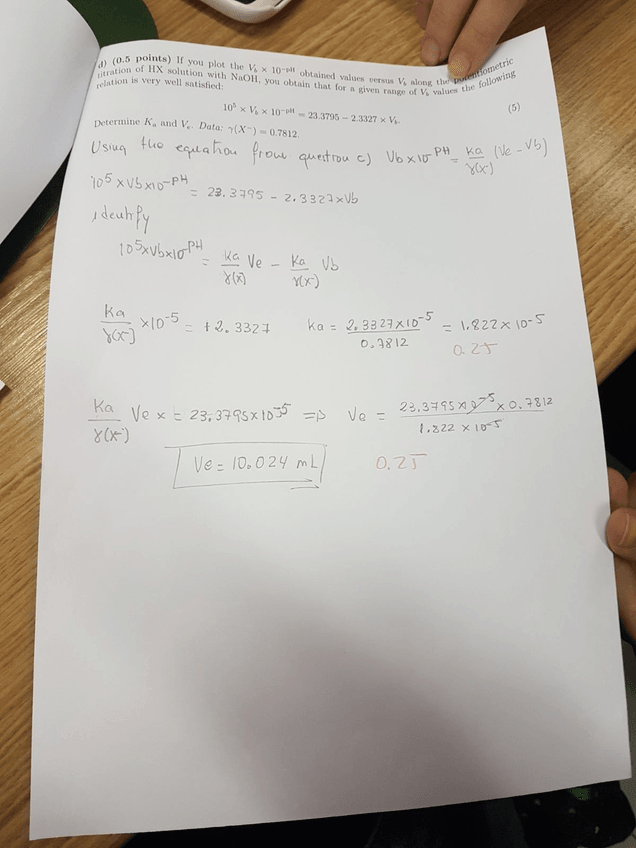 d) (0.5 points) If you plot the V_b × 10^{-pH} obtained values versus V_b along the potentiometric
titration of HX solution with NaOH, you obtain that for a given range of V_b values the following
relation is very well satisfied:
10^5 × V_b × 10^{-pH} = 23.3795 − 2.3327 × V_b. (5)
Determine K_a and V_e. Data: γ(X^−) = 0.7812.
Using the equation from question c) Vb×10^{-PH} = Ka/γ(x-) (Ve - Vb)
10^5 x Vb x10^{-PH} = 23.3795 - 2.3327xVb
identify
10^5xVbx10^{-PH} = Ka/γ(x) Ve - Ka/γ(x-) Vb
Ka/γ(x-) x10^{-5} = +2.3327 Ka = 2.3327x10^{-5}/0.7812 = 1.822x10^{-5}
0.25
Ka/γ(x-) Ve x = 23.3795x10^{-5} => Ve = 23.3795x10^{-5}x0.7812/1.822 x10^{-5}
Ve = 10.024 mL 0.25